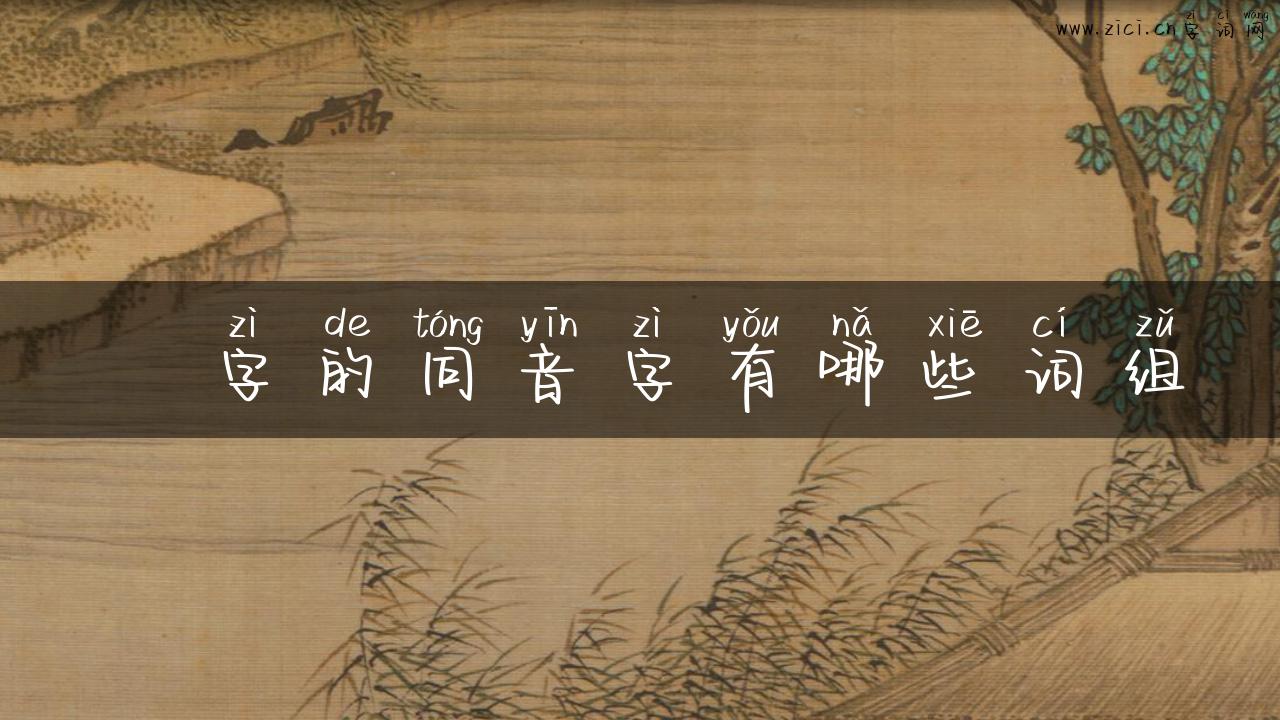 zì cí wǎng
www.zici.cn字词网
zì de tóng yīn zì yǒu nǎ xiē cí zǔ
字的同音字有哪些词组